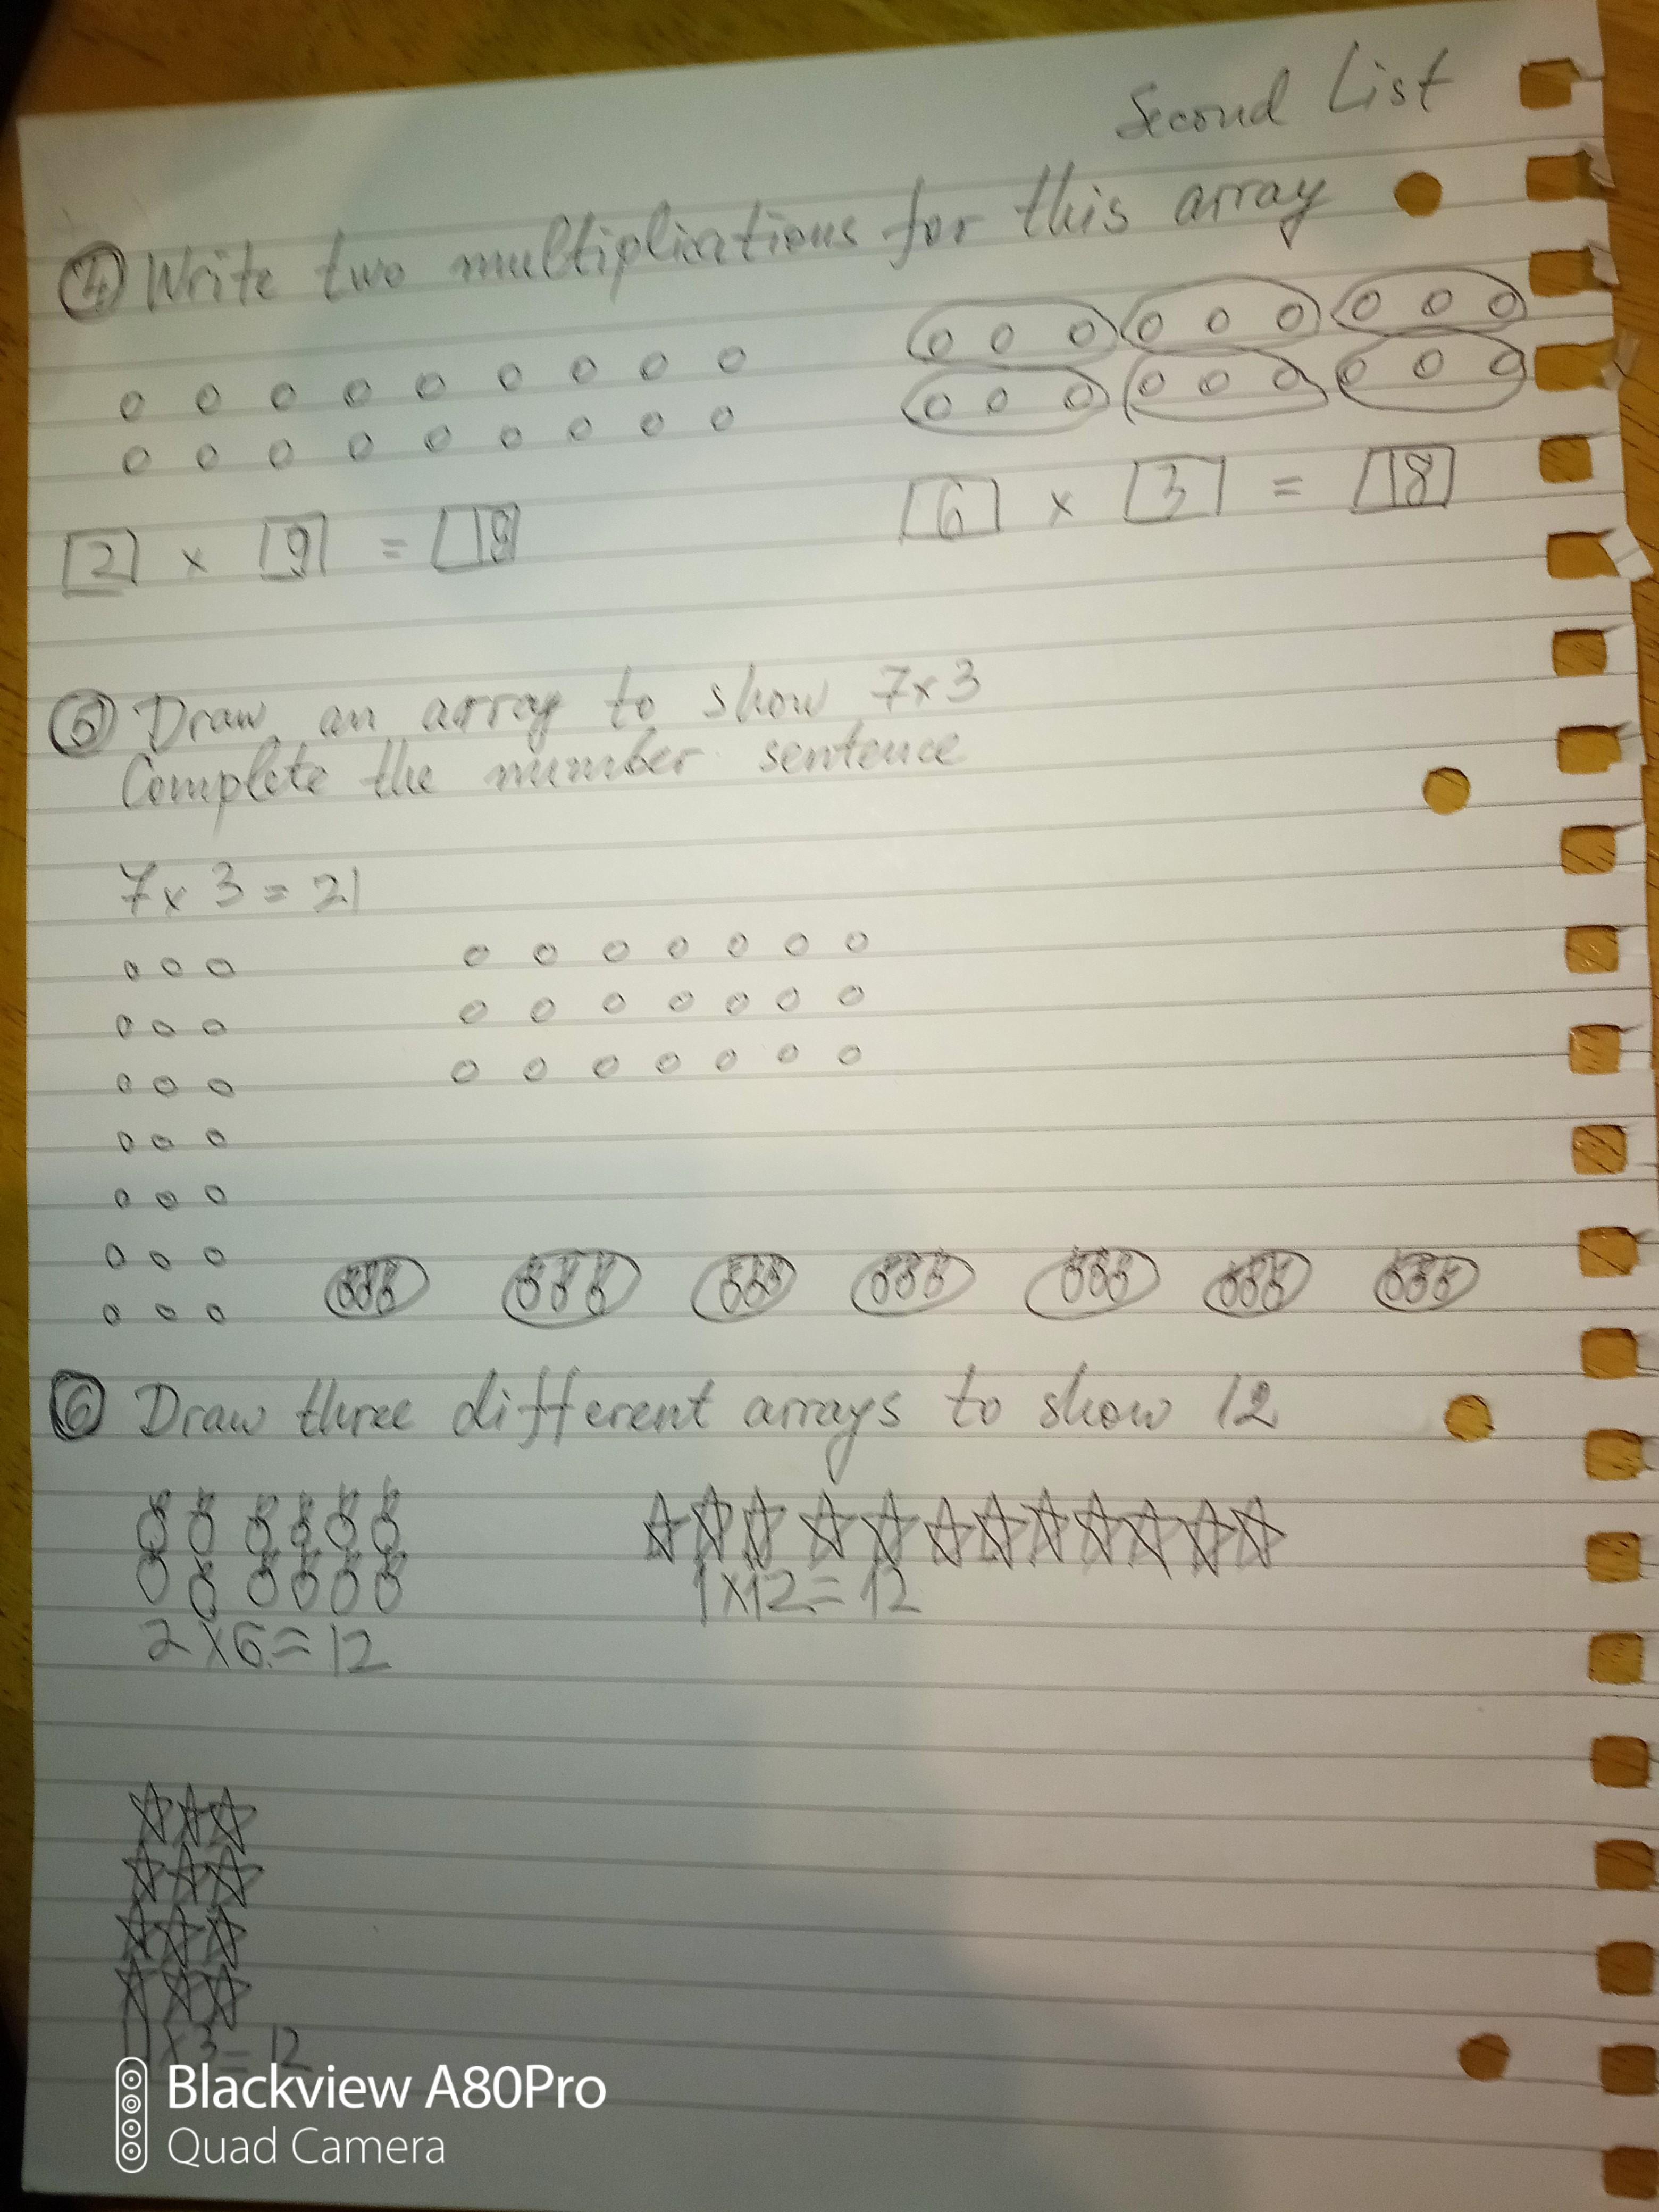 Second List
4 Write two multiplications for this array
2 x 9 = 18
6 x 3 = 18
5 Draw an array to show 7x3
Complete the number sentence
7x 3 = 21
6 Draw three different arrays to show 12
2 x 6 = 12
1x12 = 12
x 3 = 12
Blackview A80Pro
Quad Camera